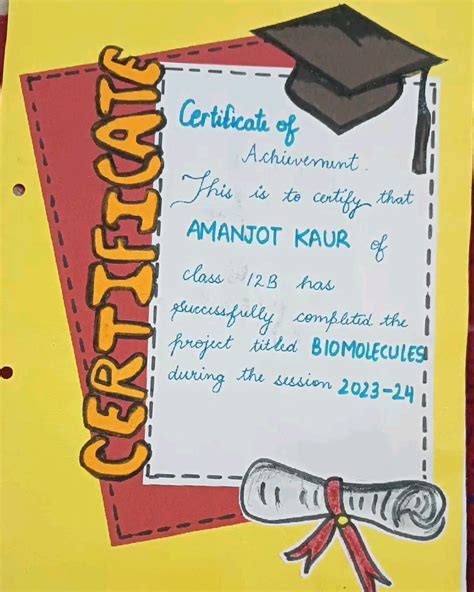 CERTIFICATE
Certificate of
Achievement.
This is to certify that
AMANJOT KAUR of
class 12B has
successfully completed the
project titled BIOMOLECULES
during the session 2023-24